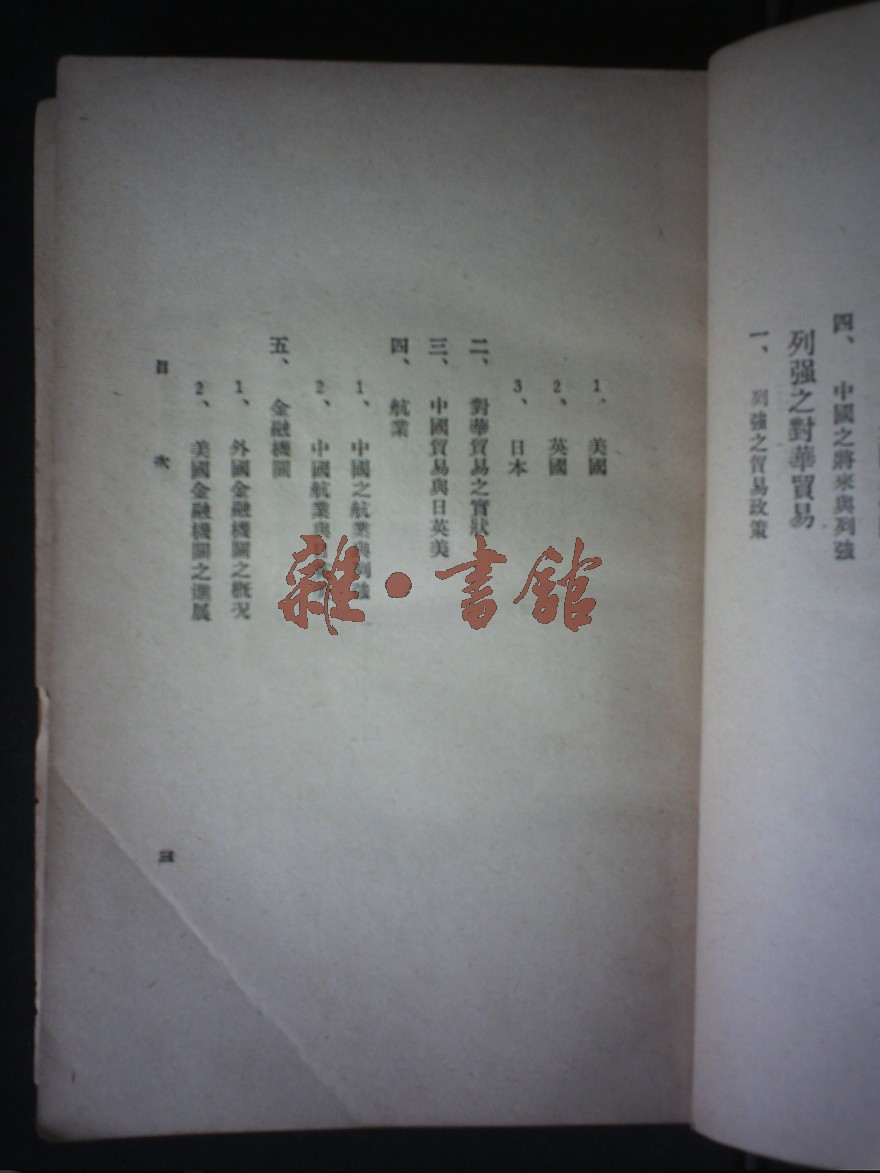 四、 中國之將來與列強
列强之對華貿易
一、 列強之貿易政策
1、 美國
2、 英國
3、 日本
二、 對華貿易之實狀
三、 中國貿易與日英美
四、 航業
1、 中國之航業與列強
2、 中國航業與
五、 金融機關
1、 外國金融機關之概況
2、 美國金融機關之進展
目 次
三
雜·書館